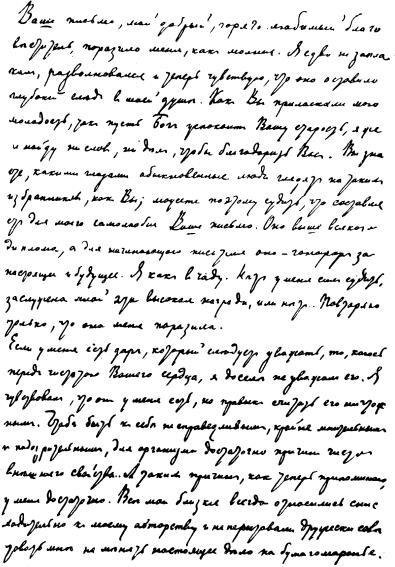 Ваше письмо, мой добрый, горячо любимый благо
веститель, поразило меня, как молния. Я едва не запла
кал, разволновался и теперь чувствую, что оно оставило
глубокий след в моей душе. Как Вы приласкали мою
молодость, так пусть Бог успокоит Вашу старость, я же
не найду ни слов, ни дел, чтобы благодарить Вас. Вы зна
ете, какими глазами обыкновенные люди глядят на таких
избранников, как Вы; можете поэтому судить, что составля
ет для моего самолюбия Ваше письмо. Оно выше всякого
диплома, а для начинающего писателя оно — гонорар за
настоящее и будущее. Я как в чаду. Нет у меня сил судить,
заслужена мной эта высокая награда, или нет. Повторяю
только, что она меня поразила.
Если у меня есть дар, который следует уважать, то, каюсь
перед чистотою Вашего сердца, я доселе не уважал его. Я
чувствовал, что он у меня есть, но привык считать его ничтож
ным. Чтоб быть к себе несправедливым, крайне мнительным
и подозрительным, для организма достаточно причин чисто
внешнего свойства. А таких причин, как теперь припоминаю,
у меня достаточно. Все мои близкие всегда относились снис
ходительно к моему авторству и не переставали дружески сове
товать мне не менять настоящее дело на бумагомаранье.